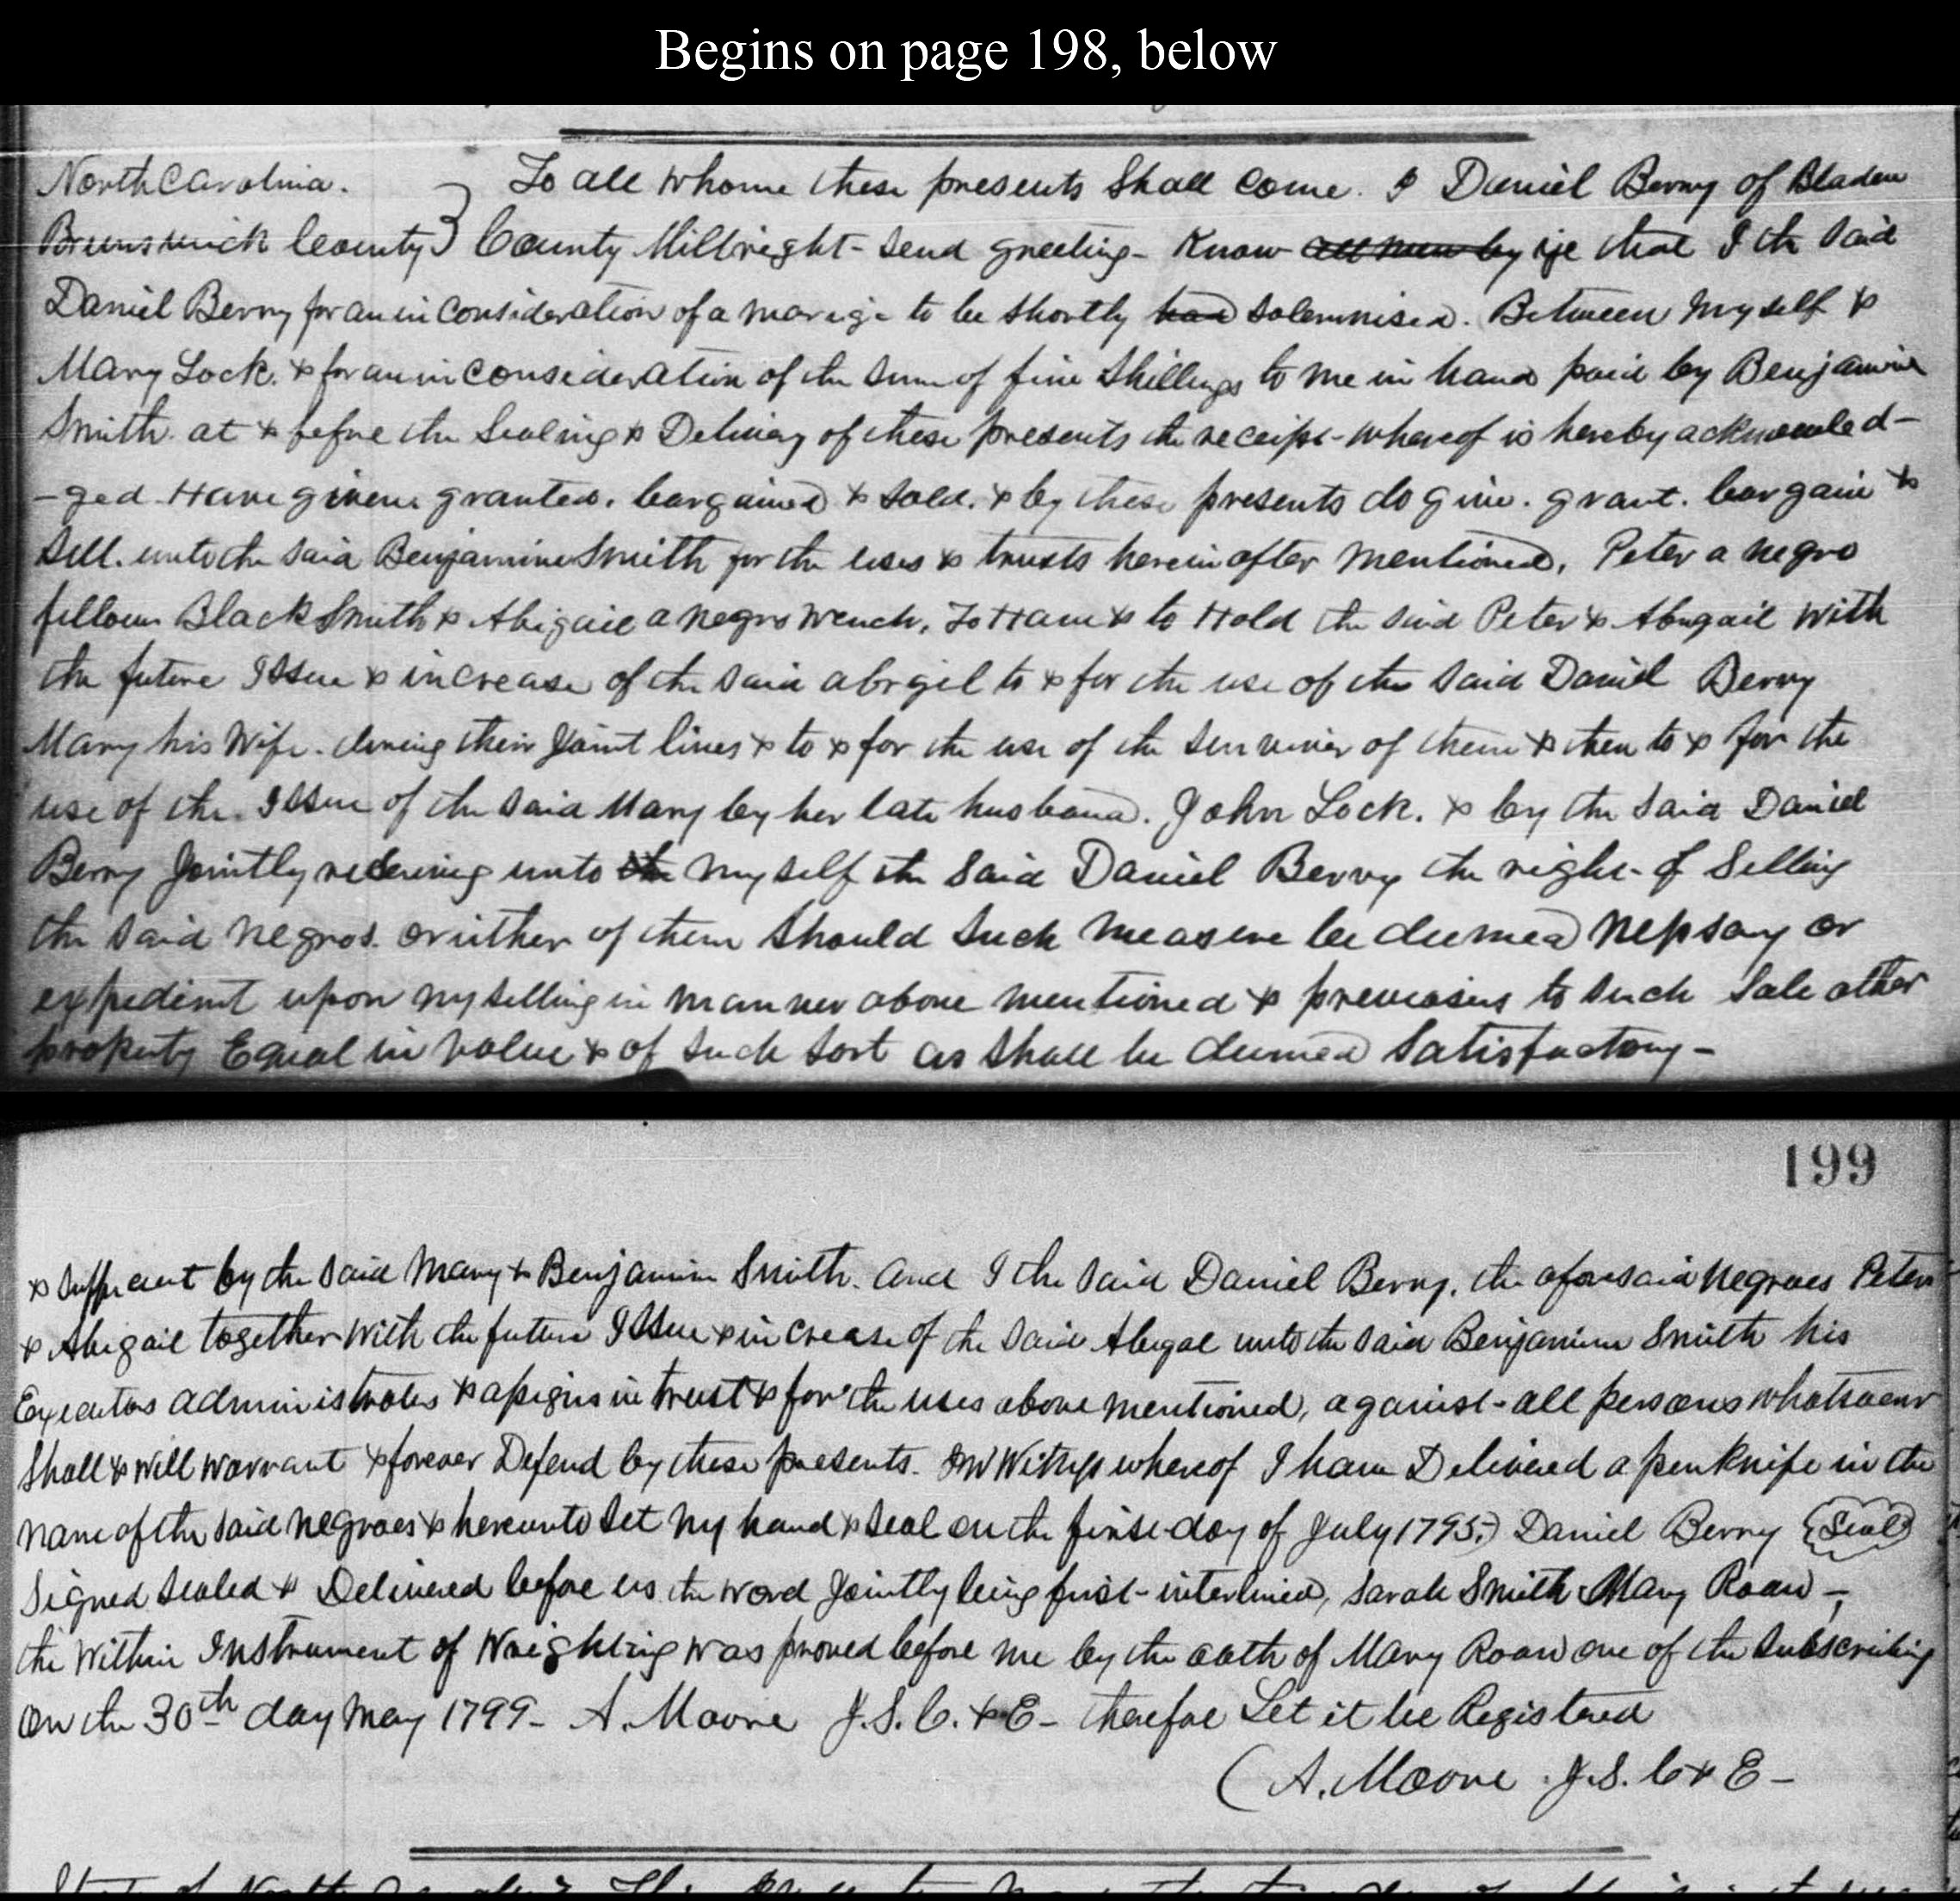 Begins on page 198, below
North Carolina. } To all whome these presents Shall come. I Daniel Berry of Bladen
Brunswick County } County Millwright - Send greeting - Know all men by ye that I the Said
Daniel Berry for an in Consideration of a marige to be Shortly had Solemnised. Between My self &
Mary Lock. & for an in consideration of the Sum of five Shillings to me in hand paid by Benjamin
Smith. at & before the Sealing & Delivery of these presents the receipt - whereof is hereby acknowled-
-ged Have given. granted. bargained & Sold. & by these presents do give. grant. bargain &
Sell. unto the Said Benjamine Smith for the uses & trusts herein after Mentioned, Peter a negro
fellow Black Smith & Abigail a negro Wench, To Have & to Hold the Said Peter & Abigail With
the future Issue & increase of the Said abrgil to & for the use of the Said Daniel Berry
Mary his Wife. during their Joint lives & to & for the use of the Surviver of them & then to & for the
use of the Issue of the Said Mary by her late husband. John Lock. & by the Said Daniel
Berry Jointly reserving unto the My self the Said Daniel Berry the right - of Selling
the Said Negros. or either of them Should Such Measure be deemed Nessary or
expedient upon my selling in manner above mentioned & previous to Such Sale other
property Equal in Value & of Such Sort as Shall be deemed Satisfactory -
199
& Sufficient by the Said Mary & Benjamin Smith. And I the Said Daniel Berry, the aforesaid Negroes Peter
& Abigail together With the future Issue & increase of the Said Abigal unto the Said Benjamin Smith his
Executors administrators & assigns in trust & for the uses above Mentioned, against - all persons whatsoever
Shall & will warrant & forever Defend by these presents. In Witness whereof I have Delivered a penknife in the
name of the Said Negroes & hereunto Set my hand & Seal on the first day of July 1795.) Daniel Berry {Seal}
Signed Sealed & Delivered before us the word Jointly being first - interlined, Sarah Smith Mary Roan -
the Within Instrument of Wrighting was proved before me by the oath of Mary Roan one of the Subscribing
On the 30th day May 1799 - A. Moore J.S.C. & E - therefore Let it be Registered
(A. Moore J.S. C & E -